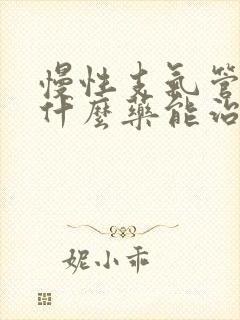 慢性支氣管
什麼藥能治
妮小乖